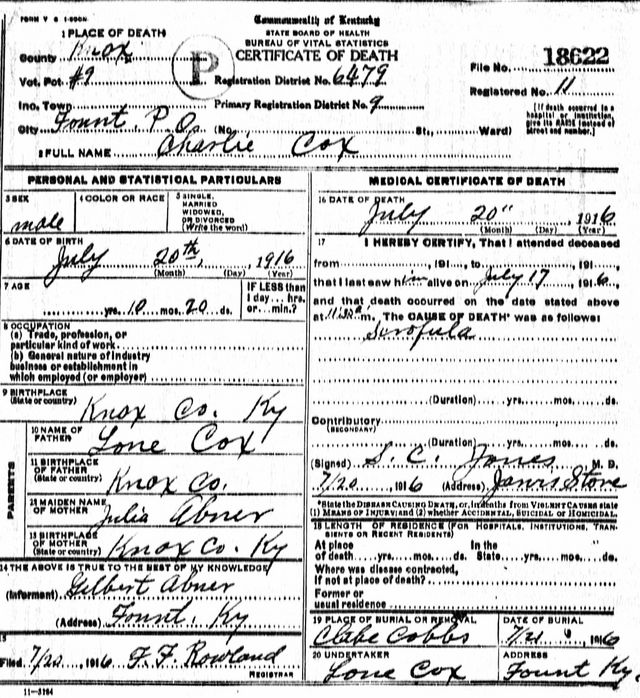 FORM V S 1-500M
Commonwealth of Kentucky
STATE BOARD OF HEALTH
BUREAU OF VITAL STATISTICS
CERTIFICATE OF DEATH
1 PLACE OF DEATH
County Knox
Vot. Pct. #9
P
Registration District No. 6479
File No. 18622
Registered No. 11
Inc. Town
Primary Registration District No. 9
[If death occurred in a hospital or institution, give its NAME instead of street and number.]
City Fount, P.O. (No. St., Ward)
2 FULL NAME Charlie Cox
PERSONAL AND STATISTICAL PARTICULARS
3 SEX
male
4 COLOR OR RACE
5 SINGLE,
MARRIED
WIDOWED,
OR DIVORCED
(Write the word)
6 DATE OF BIRTH
July 20th, 1916
(Month) (Day) (Year)
7 AGE
yrs. 10 mos. 20 ds.
IF LESS than
1 day... hrs.
or... min.?
8 OCCUPATION
(a) Trade, profession, or
particular kind of work
(b) General nature of industry
business or establishment in
which employed (or employer)
9 BIRTHPLACE
(State or country) Knox Co. Ky
PARENTS
10 NAME OF
FATHER Lone Cox
11 BIRTHPLACE
OF FATHER
(State or country) Knox Co.
12 MAIDEN NAME
OF MOTHER Julia Abner
13 BIRTHPLACE
OF MOTHER
(State or country) Knox Co. Ky
14 THE ABOVE IS TRUE TO THE BEST OF MY KNOWLEDGE
(Informant) Gilbert Abner
(Address) Fount, Ky
15
Filed 7/20, 1916 F. F. Rowland
REGISTRAR
11-3184
MEDICAL CERTIFICATE OF DEATH
16 DATE OF DEATH
July 20", 1916
(Month) (Day) (Year)
17 I HEREBY CERTIFY, That I attended deceased
from, 191, to, 191,
that I last saw him alive on July 17, 1916,
and that death occurred on the date stated above
at m. The CAUSE OF DEATH* was as follows:
Scrofula
(Duration) yrs. mos. ds.
Contributory
(SECONDARY)
(Duration) yrs. mos. ds.
(Signed) S. C. Jones M. D.
7/20, 1916 (Address) Jarvis Store
*State the DISEASE CAUSING DEATH, or, in deaths from VIOLENT CAUSES state
(1) MEANS OF INJURY; and (2) whether ACCIDENTAL, SUICIDAL or HOMICIDAL.
18 LENGTH OF RESIDENCE (FOR HOSPITALS, INSTITUTIONS, TRAN-
SIENTS OR RECENT RESIDENTS)
At place
of death yrs. mos. ds.
In the
State yrs. mos. ds.
Where was disease contracted,
if not at place of death?
Former or
usual residence
19 PLACE OF BURIAL OR REMOVAL
Clabe Cobbs
DATE OF BURIAL
7/21, 1916
20 UNDERTAKER
Lone Cox
ADDRESS
Fount Ky.